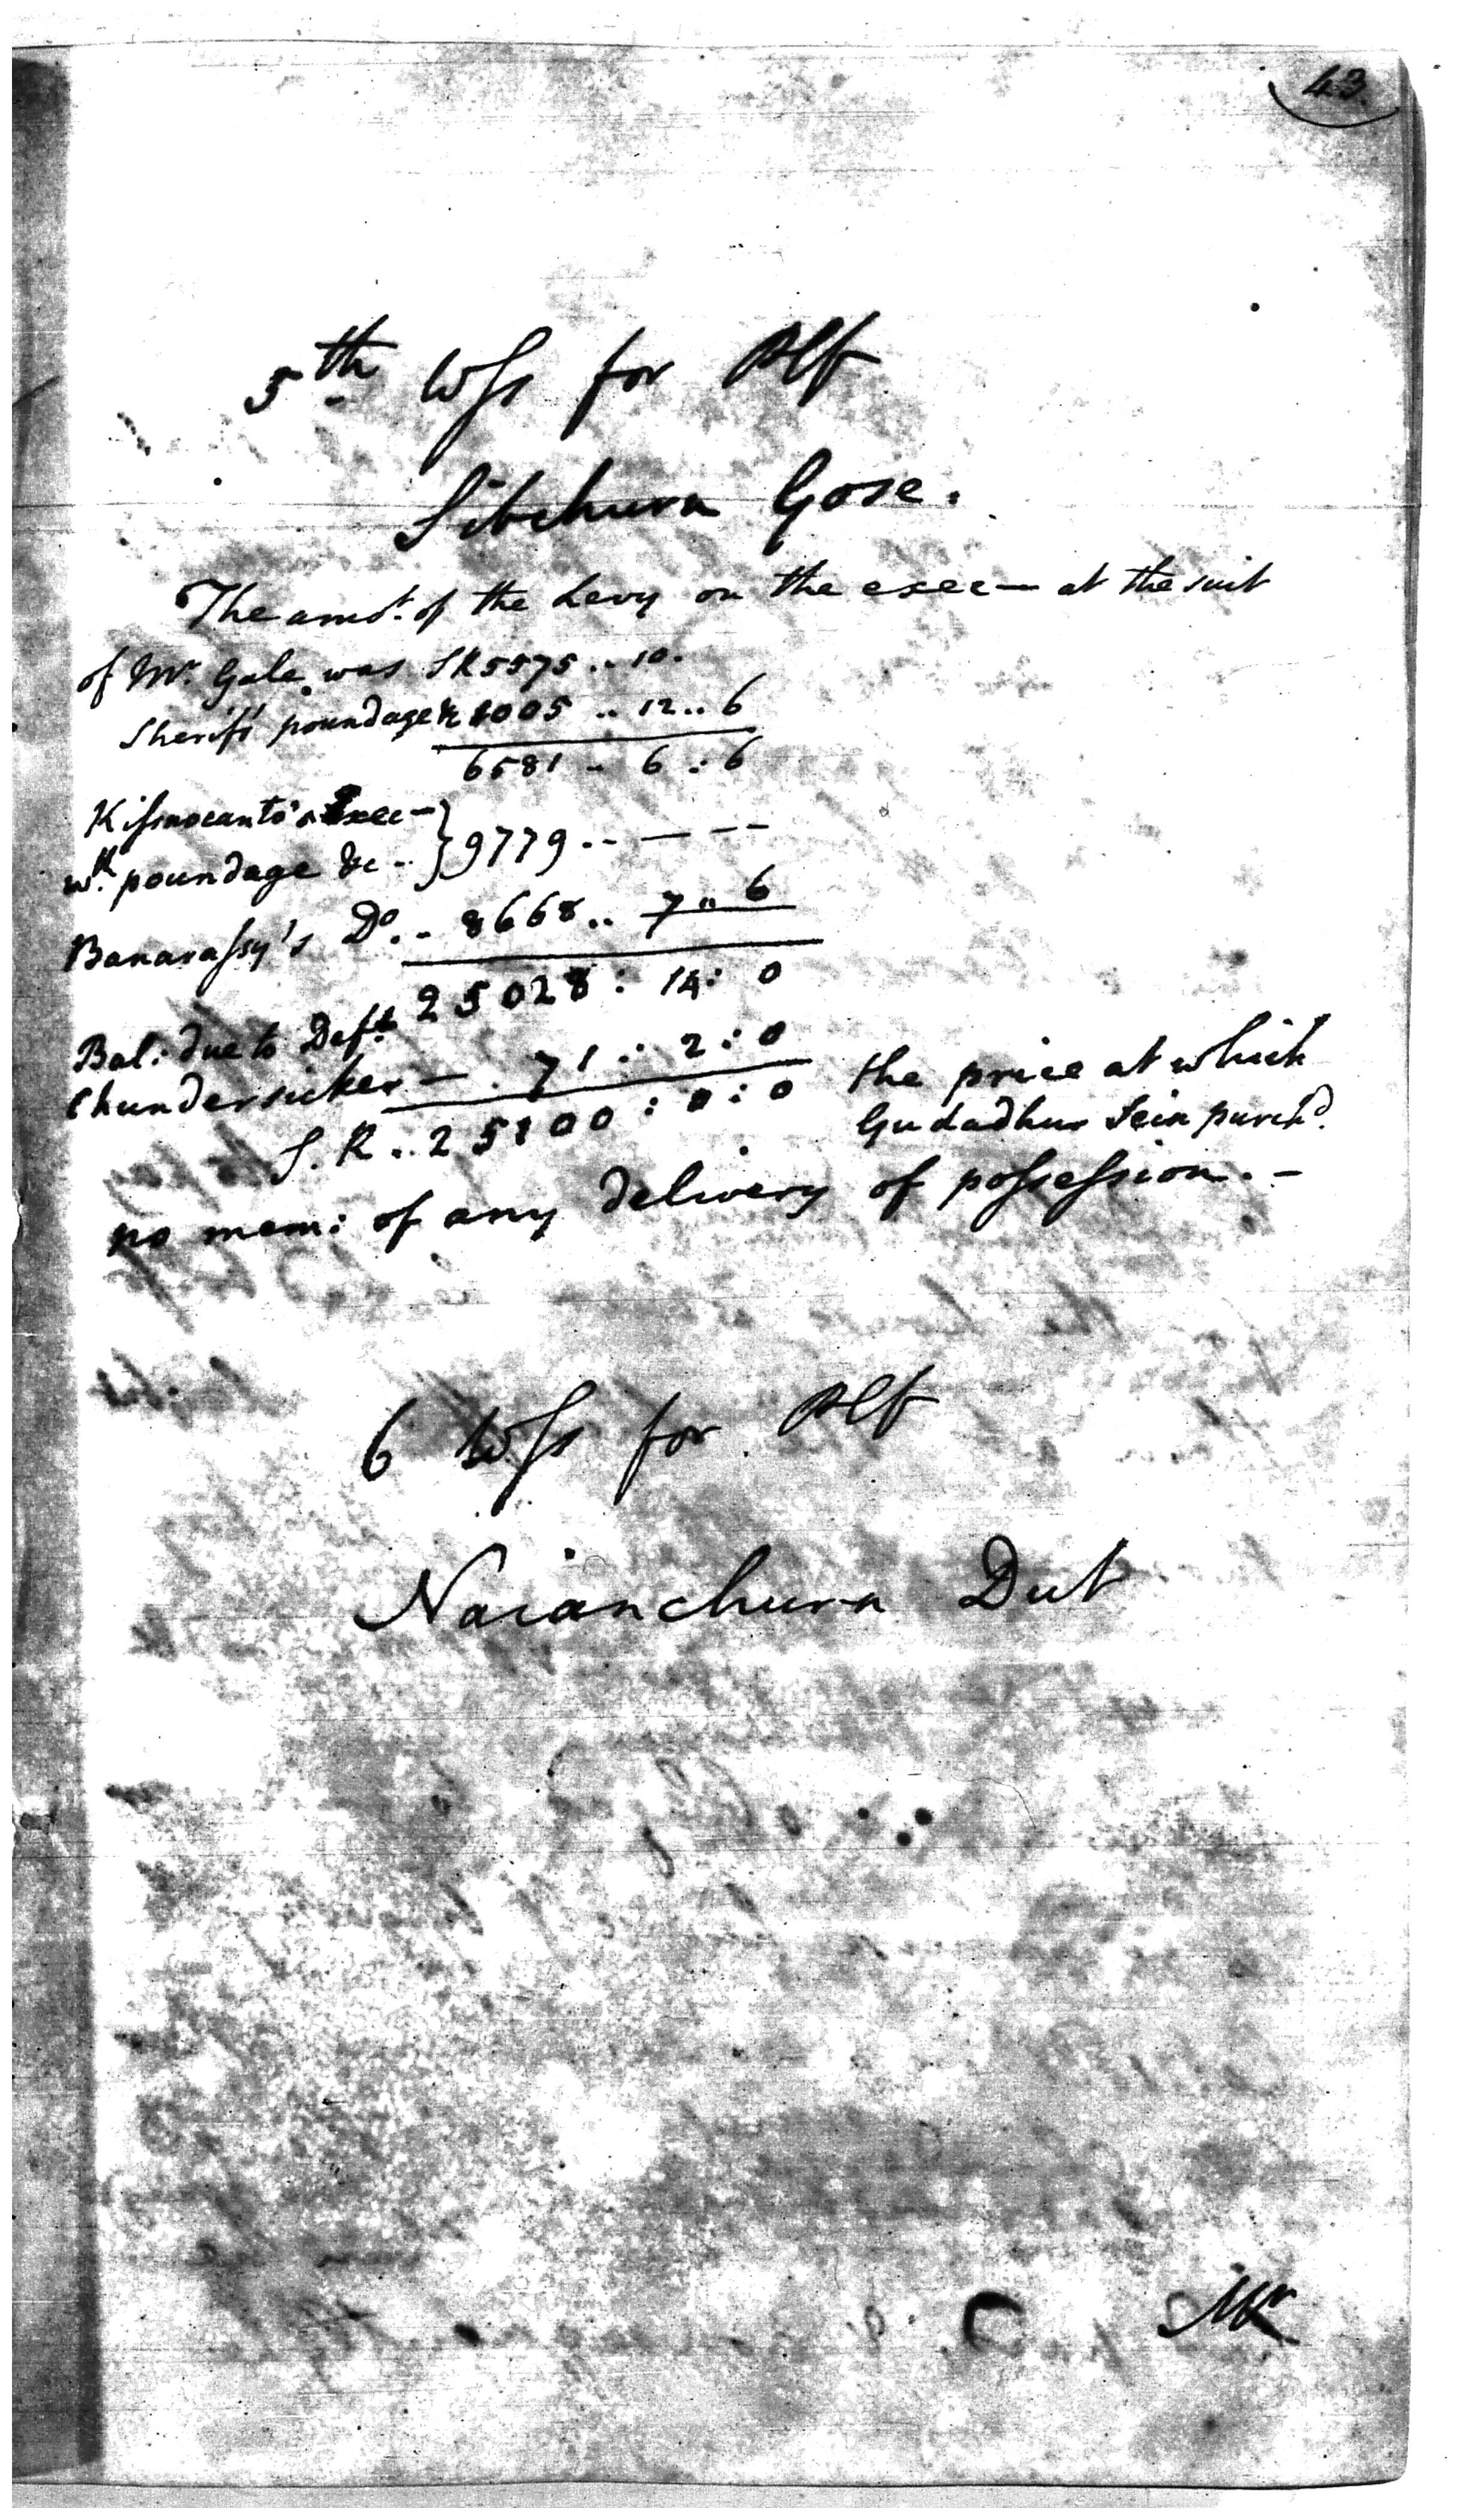 43.
5th Wss for Plf
Sibchurn Gose.
The amot. of the Levy on the exec— at the suit
of Mr. Gale was SR 5575 .. 10.
Sheriffs poundage &c 1005 .. 12 .. 6
6581 .. 6 : 6
Kissnocanto's Exec—
wth. poundage &c .. } 9779 .. — — —
Banarassy's Do. .. 8668 .. 7 .. 6
25028 : 14 : 0
Bal: due to Deft
Chundersicker — . 71 : 2 : 0
S. R .. 25100 : 0 : 0 the price at which
Gudadhur Sein purchd.
no mem: of any delivery of possession. —
6 Wss for Plf
Naianchurn Dut